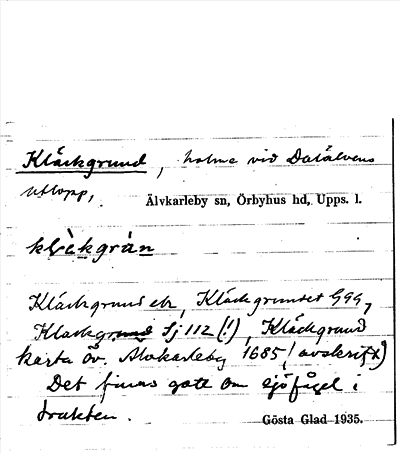 Kläckgrund, holme vid Dalälvens
utlopp,
Älvkarleby sn, Örbyhus hd, Upps. l.
klèkgràn
Kläckgrund ek, Kläckgrundet GGG,
Klackgrund Sj 112 (!), Kläckgrund
karta öv. Älvkarleby 1685 (avskrift)
Det finns gott om sjöfågel i
trakten.
Gösta Glad 1935.